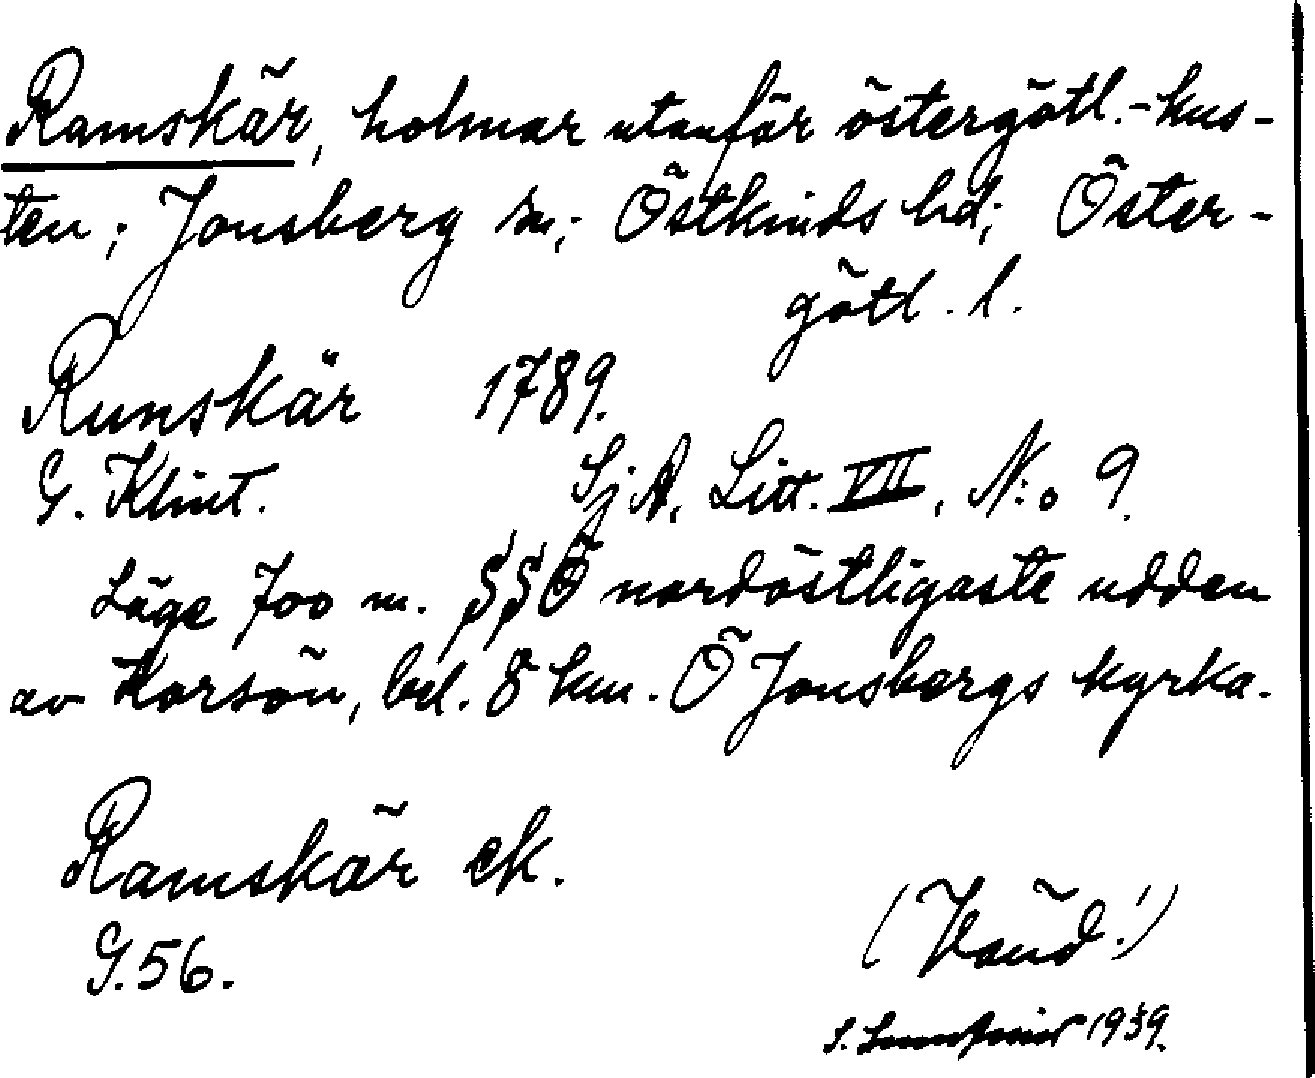 Ramskär, holmar utanför östergötl.-kus-
ten; Jonsberg sn; Östkinds hd; Öster-
götl. l.
Runskär 1789.
G. Klint. SjA, Litt. VII, N:o 9.
Läge 700 m. SSÖ nordöstligaste udden
av Korsön, bel. 8 km. Ö Jonsbergs kyrka.
Ramskär ek.
G.56.
(Vänd!)
S. 1939.